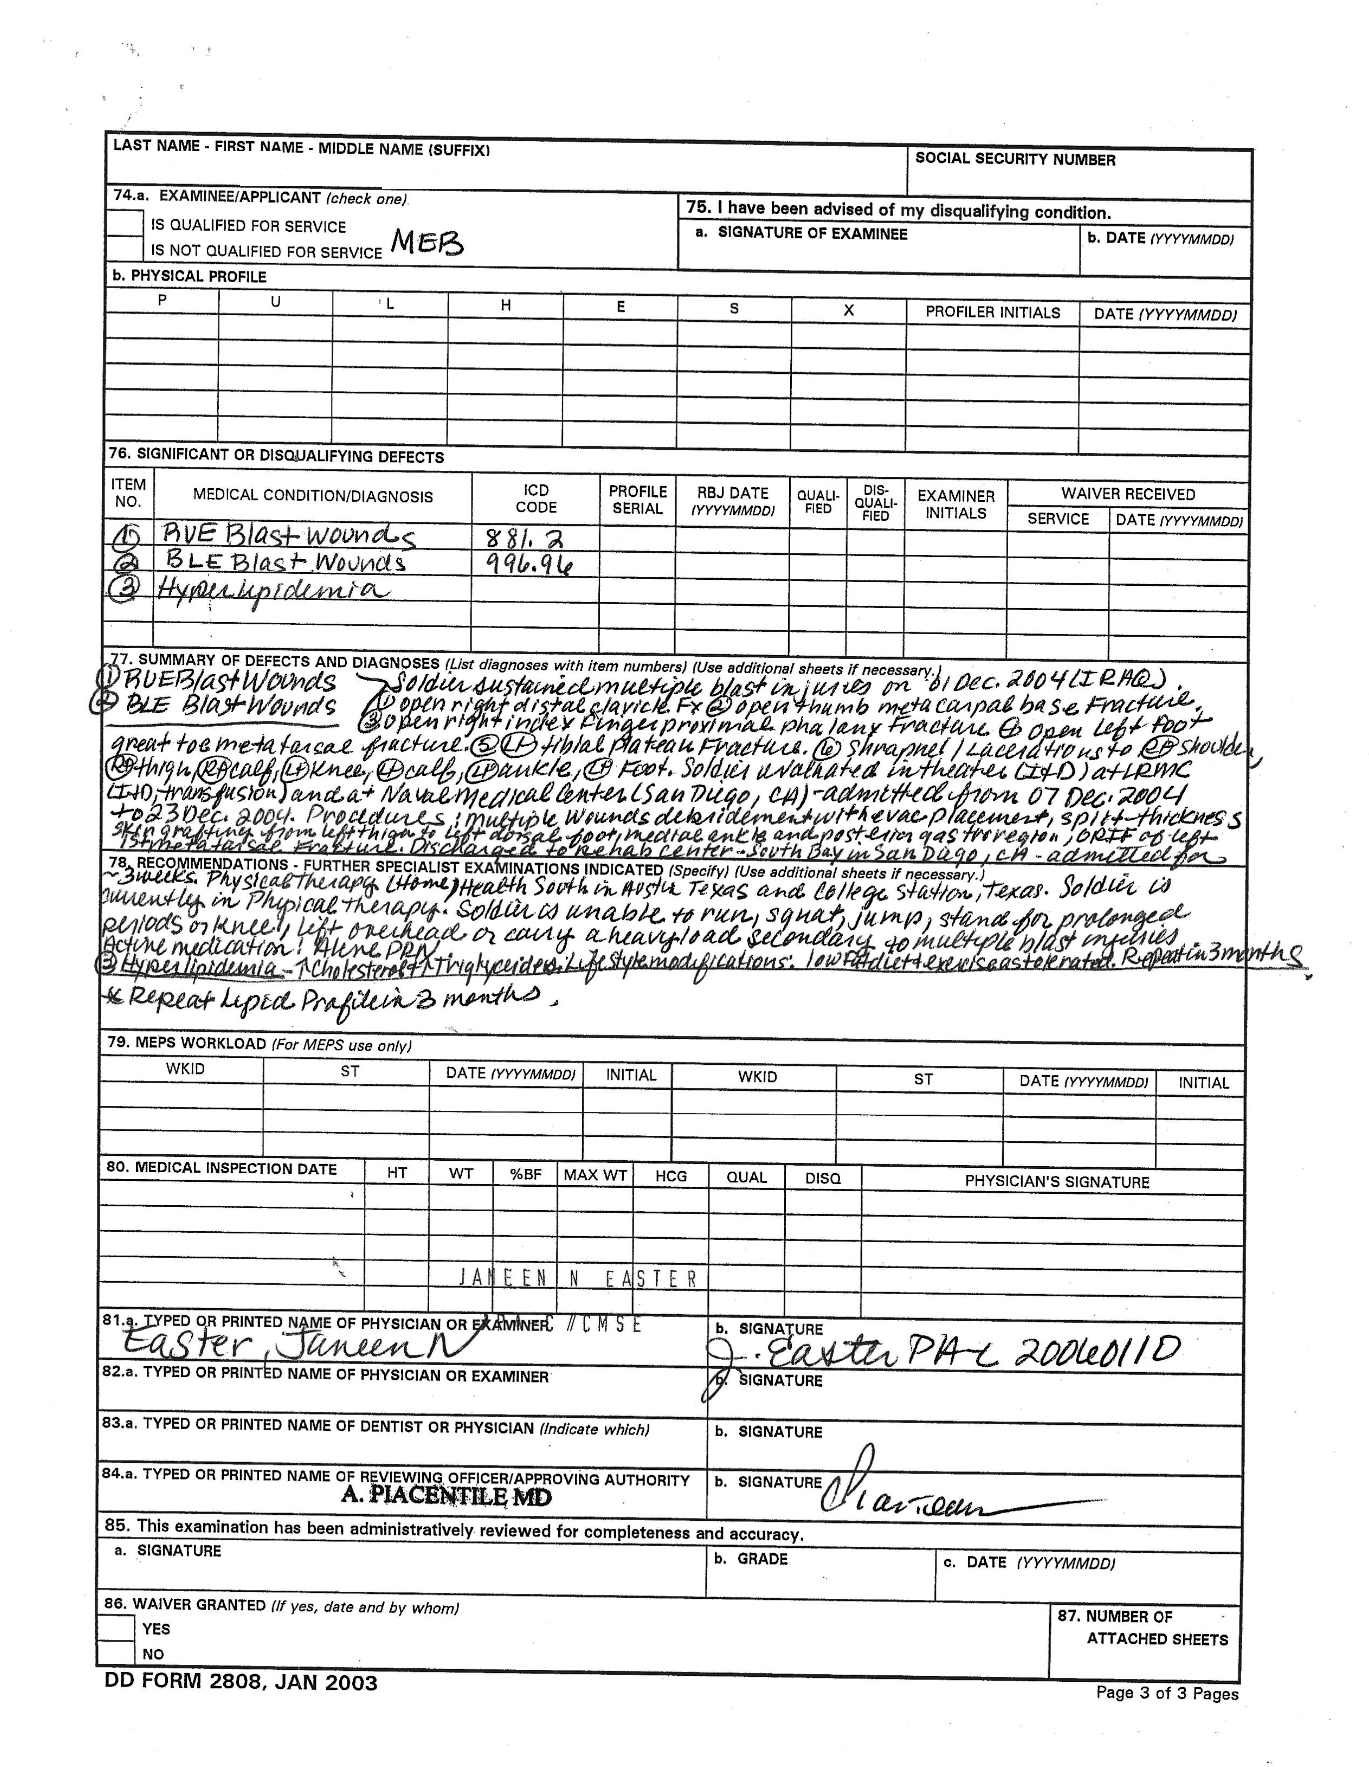 LAST NAME - FIRST NAME - MIDDLE NAME (SUFFIX)
SOCIAL SECURITY NUMBER
74.a. EXAMINEE/APPLICANT (check one)
IS QUALIFIED FOR SERVICE
IS NOT QUALIFIED FOR SERVICE MEB
75. I have been advised of my disqualifying condition.
a. SIGNATURE OF EXAMINEE
b. DATE (YYYYMMDD)
b. PHYSICAL PROFILE
P U L H E S X PROFILER INITIALS DATE (YYYYMMDD)
76. SIGNIFICANT OR DISQUALIFYING DEFECTS
ITEM NO. MEDICAL CONDITION/DIAGNOSIS ICD CODE PROFILE SERIAL RBJ DATE (YYYYMMDD) QUALI-FIED DIS-QUALI-FIED EXAMINER INITIALS WAIVER RECEIVED
SERVICE DATE (YYYYMMDD)
① RUE Blast Wounds 881.2
② BLE Blast Wounds 996.96
③ Hyperlipidemia
77. SUMMARY OF DEFECTS AND DIAGNOSES (List diagnoses with item numbers) (Use additional sheets if necessary.)
① RUE Blast Wounds Soldier sustained multiple blast injuries on 01 Dec. 2004 (IRAQ).
② BLE Blast Wounds ① open right distal clavicle Fx ② open thumb metacarpal base Fracture,
③ open right index Finger proximal phalanx Fracture ④ open left foot
great toe metatarsal fracture. ⑤ tibial plateau Fracture. ⑥ Shrapnel / Lacerations to shoulder,
thigh, calf, knee, calf, ankle, Foot. Soldier evaluated in theater (I+D) at LRMC
(I+D, transfusion) and at Naval Medical Center (San Diego, CA) - admitted from 07 Dec. 2004
to 23 Dec. 2004. Procedures: multiple wounds debridement with evac placement, split-thickness
skin grafting from left thigh to left dorsal foot, medial ankle and posterior gastroregion, ORIF of left
1st metatarsal Fracture. Discharged to rehab center - South Bay in San Diago, CA - admitted for
78. RECOMMENDATIONS - FURTHER SPECIALIST EXAMINATIONS INDICATED (Specify) (Use additional sheets if necessary.)
~3 weeks. Physical Therapy (Home) Health South in Austin Texas and College Station, Texas. Soldier is
currently in Physical therapy. Soldier is unable to run, squat, jump, stand for prolonged
periods or kneel, lift overhead or carry a heavy load secondary to multiple blast injuries.
Active medication: Aleve PRN
③ Hyperlipidemia - ↑Cholesterol + ↑Triglycerides. Lifestyle modifications: low fat diet + exercise as tolerated. Repeat in 3 months.
* Repeat Lipid Profile in 3 months.
79. MEPS WORKLOAD (For MEPS use only)
WKID ST DATE (YYYYMMDD) INITIAL WKID ST DATE (YYYYMMDD) INITIAL
80. MEDICAL INSPECTION DATE HT WT %BF MAX WT HCG QUAL DISQ PHYSICIAN'S SIGNATURE
JANEEN N EASTER
81.a. TYPED OR PRINTED NAME OF PHYSICIAN OR EXAMINER //CMSE
Easter, Janeen N
b. SIGNATURE
J. Easter PA-C 20060110
82.a. TYPED OR PRINTED NAME OF PHYSICIAN OR EXAMINER
b. SIGNATURE
83.a. TYPED OR PRINTED NAME OF DENTIST OR PHYSICIAN (Indicate which)
b. SIGNATURE
84.a. TYPED OR PRINTED NAME OF REVIEWING OFFICER/APPROVING AUTHORITY
A. PIACENTILE MD
b. SIGNATURE
85. This examination has been administratively reviewed for completeness and accuracy.
a. SIGNATURE
b. GRADE
c. DATE (YYYYMMDD)
86. WAIVER GRANTED (If yes, date and by whom)
YES
NO
87. NUMBER OF ATTACHED SHEETS
DD FORM 2808, JAN 2003
Page 3 of 3 Pages